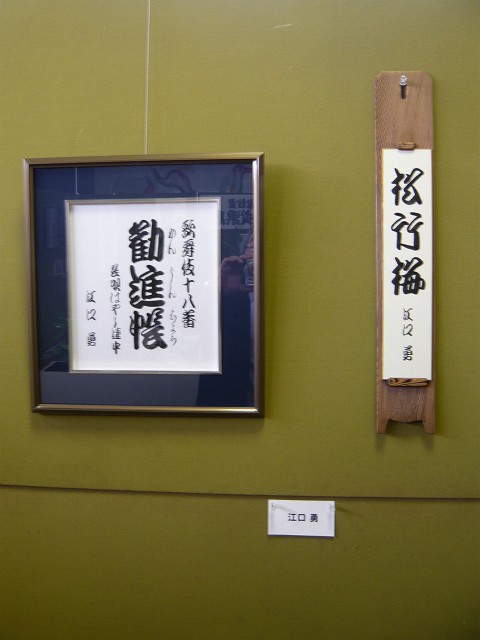 歌舞伎十八番
勧進帳
かん じん ちょう
長唄はやし連中
江口 勇
松竹梅
江口 勇
江口 勇